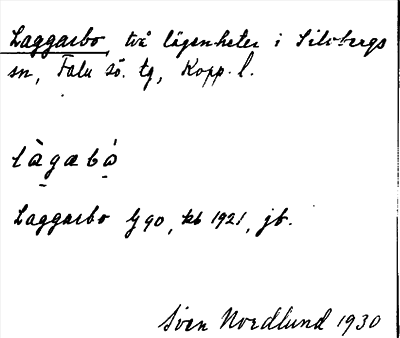 Laggarbo, två lägenheter i Silvbergs
sn, Falu sö. tg, Kopp. l.
làgabó
Laggarbo 1/4 90, kb 1921, jb.
Sven Nordlund 1930